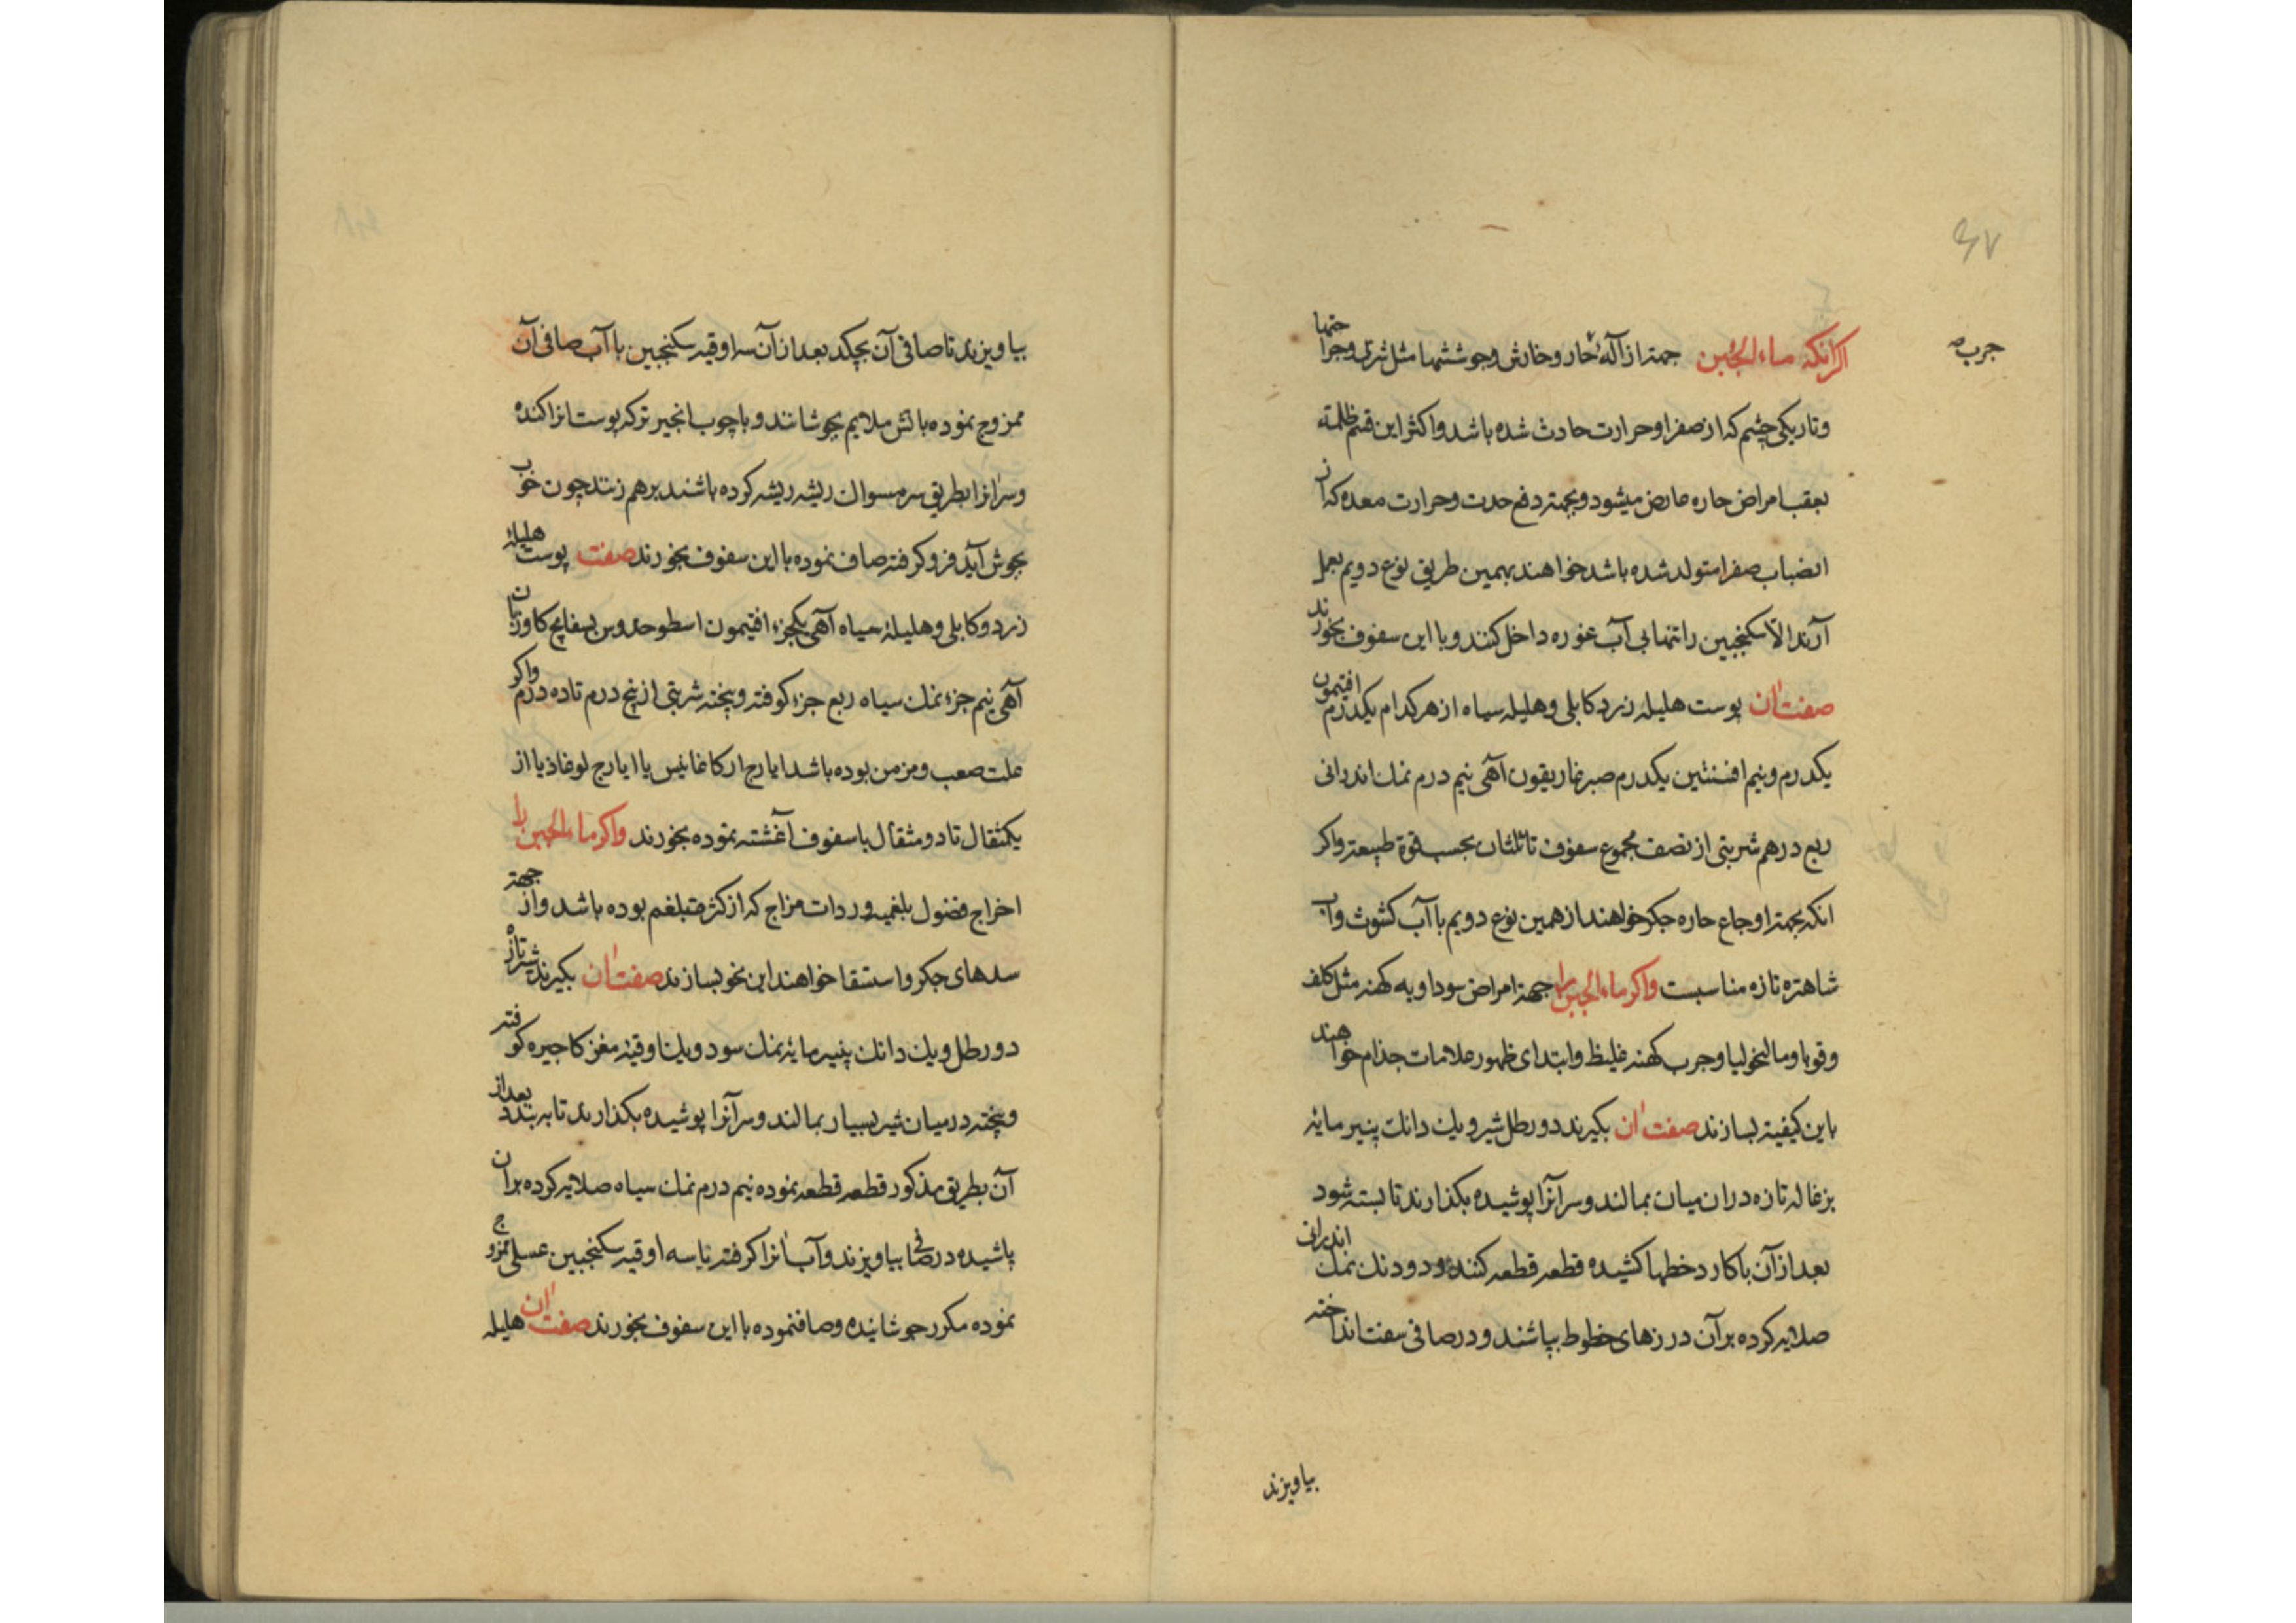 ٤٧
جرب
اکر انکه ماء الجبن جهتر ازالهٔ حار و خارش و جوششها مثل شری و جراحتها
و تاریکی چشم که از صفرا و حرارت حادث شده باشد و اکثر این قسم ظلمته
بعقب امراض حاره عارض میشود و بجهتر دفع حدت و حرارت معده که از
انصباب صفرا متولد شده باشد خواهند بهمین طریق نوع دویم بعمل
آرند الا سکنجبین را تنها بی آب غوره داخل کنند و با این سفوف بخورند
صفت ان پوست هلیله زرد کابلی و هلیله سیاه از هر کدام یکدرم افتیمون
یکدرم و نیم افسنتین یکدرم صبر غاریقون آهی نیم درم نمک اندرانی
ربع درهم شربتی از نصف مجموع سفوف تا ثلثان بحسب قوة طبیعتر واکر
انکه بجهتر اوجاع حاره جکر خواهند از همین نوع دویم با آب کشوث و آب
شاهتره تازه مناسبست واکر ماء الجبن را جهتر امراض سوداویه کهنه مثل کلف
و قوبا و مالیخولیا و جرب کهنه غلیظ و ابتدای ظهور علامات جذام خواهند
باین کیفیتر بسازند صفت ان بکیرند دو رطل شیر و یک دانک پنیر مایهٔ
بزغاله تازه در ان میان بمالند و سر آنرا پوشیده بکذارند تا بسته شود
بعد از آن با کارد خطها کشیده قطعه قطعه کنند و دو دنک نمک اندرانی
صلایه کرده بر آن درزهای خطوط بپاشند و در صافی سفت انداخته
بیاویزند
بیاویزند تا صافی آن بچکد بعد از آن سه اوقیه سکنجبین با آب صافی آن
ممزوج نموده باتش ملایم بجوشانند و با چوب انجیر ترکه پوست انرا کنده
و سر انرا بطریق سر مسواک ریشه ریشه کرده باشند برهم زنند چون خوب
بجوش آید فرو کرفته صاف نموده با این سفوف بخورند صفت پوست هلیلهٔ
زرد و کابلی و هلیلهٔ سیاه آهی یکجزء افتیمون اسطوخدوس بسفایج کاوزبان
آهی نیم جزء نمک سیاه ربع جزء کوفته و پخته شربتی از پنج درم تا ده درم واکر
علت صعب و مزمن بوده باشد ایارج ارکاغانیس یا ایارج لوغاذیا از
یکمثقال تا دو مثقال با سفوف آغشته نموده بخورند واکر ماء الجبن را
اخراج فضول بلغمیه و ردات مزاج که از کثرة بلغم بوده باشد و از جهتر
سدهای جکر و استسقا خواهند این نحو بسازند صفت ان بکیرند شیر تازه
دو رطل و یک دانک پنیر مایهٔ نمک سود و یک اوقیهٔ مغز کاجیره کوفته
و پخته در میان شیر بسیار بمالند و سر آنرا پوشیده بکذارند تا ببندد بعد از
آن بطریق مذکور قطعه قطعه نموده نیم درم نمک سیاه صلایه کرده بر آن
پاشیده در صافی بیاویزند و آب انرا کرفته با سه اوقیه سکنجبین عسلی ممزوج
نموده مکرر جوشانیده و صاف نموده با این سفوف بخورند صفت ان هلیله